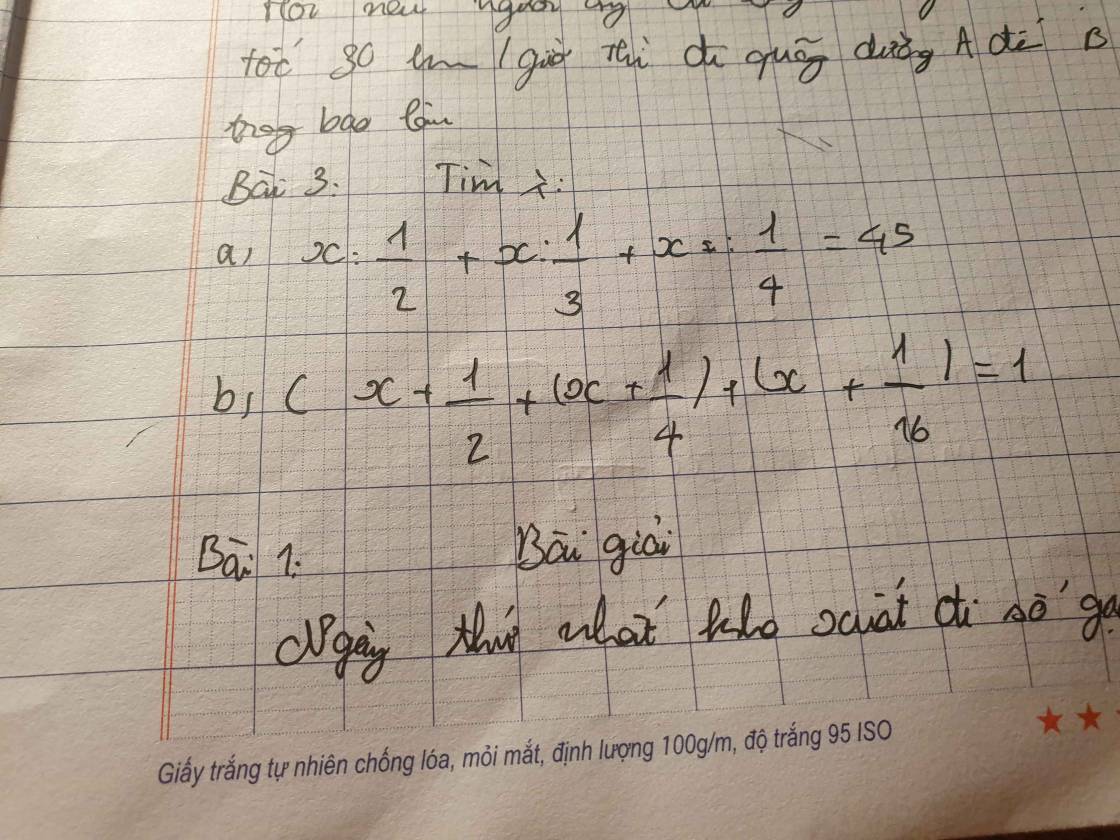 tốc 30 km / giờ thì đi quãg đường A đế B
trog bao lâu
Bài 3: Tìm x:
a, x : 1/2 + x : 1/3 + x = : 1/4 = 45
b, ( x + 1/2 + (x + 1/4 ) + (x + 1/16 ) = 1
Bài 1: Bài giải
Ngày thứ nhất kho xuất đi số
Giấy trắng tự nhiên chống lóa, mỏi mắt, định lượng 100g/m, độ trắng 95 ISO